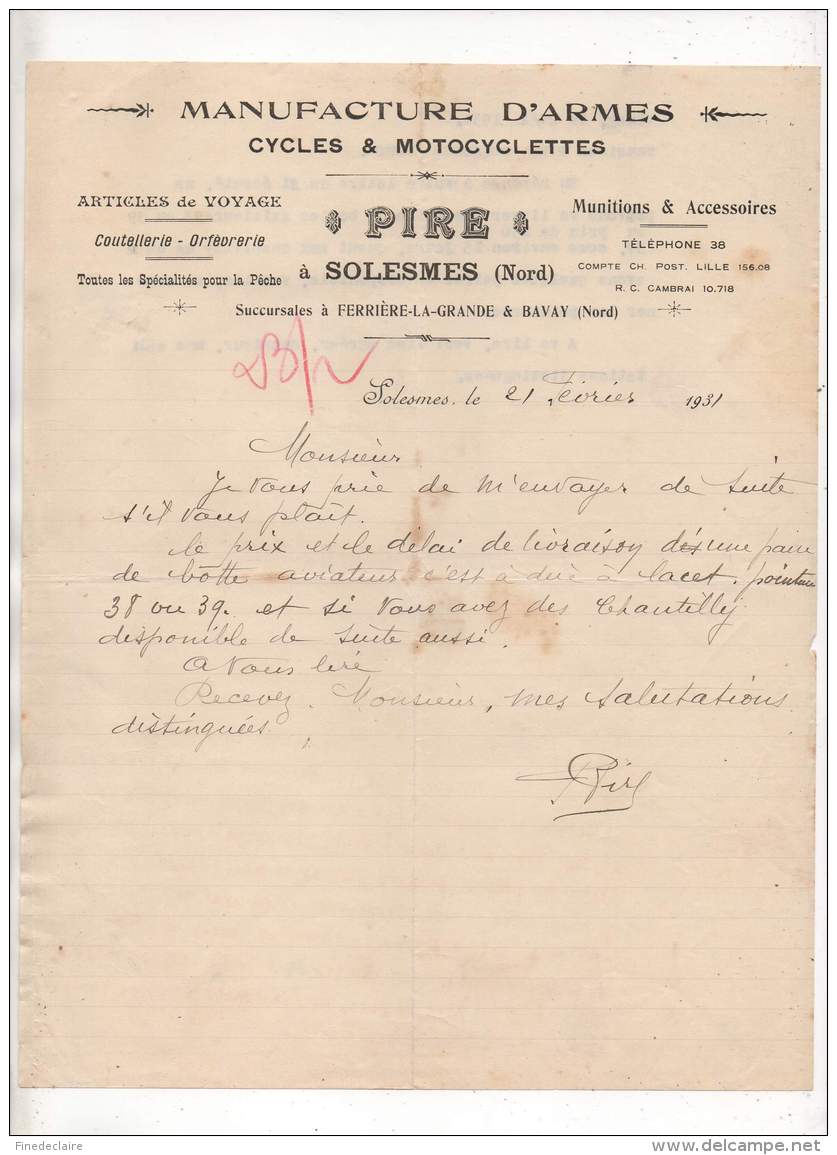 MANUFACTURE D'ARMES
CYCLES & MOTOCYCLETTES
ARTICLES de VOYAGE
Coutellerie - Orfèvrerie
Toutes les Spécialités pour la Pêche
PIRE
à SOLESMES (Nord)
Munitions & Accessoires
TÉLÉPHONE 38
COMPTE CH. POST. LILLE 156.08
R. C. CAMBRAI 10.718
Succursales à FERRIÈRE-LA-GRANDE & BAVAY (Nord)
Solesmes, le 21 Février 1931
Monsieur
Je vous prie de m'envoyer de suite
s'il vous plait.
le prix et le délai de livraison d'une paire
de bôtte aviateur c'est à dire à lacet. pointure
38 ou 39. et si vous avez des Chantilly
disponible de suite aussi.
A vous lire
Recevez, Monsieur, mes salutations
distinguées
Pire
Finedeclaire
www.delcampe.net